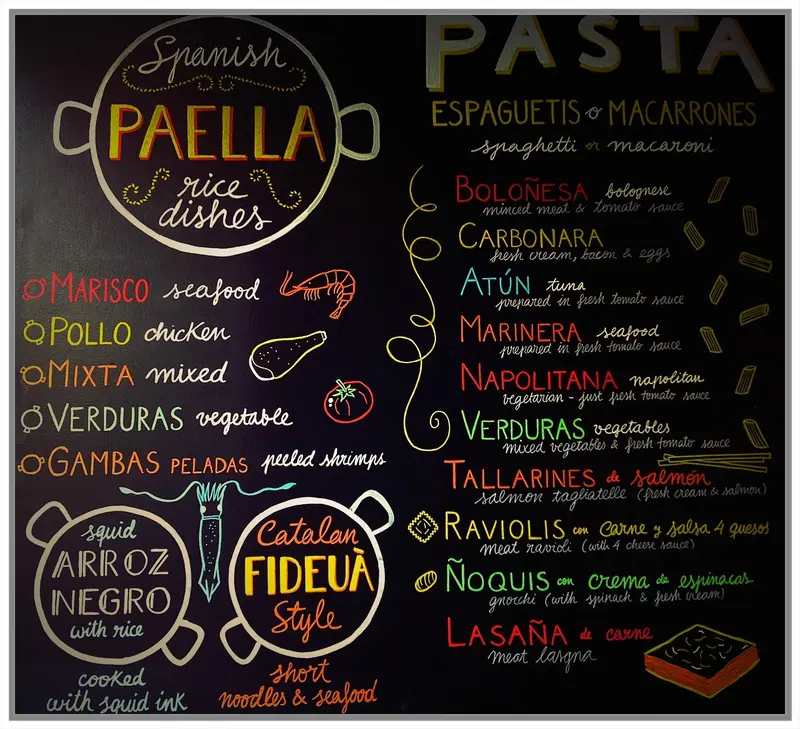 Spanish
PAELLA
rice
dishes
MARISCO seafood
POLLO chicken
MIXTA mixed
VERDURAS vegetable
GAMBAS PELADAS peeled shrimps
squid
ARROZ
NEGRO
with rice
cooked
with squid ink
Catalan
FIDEUÀ
Style
short
noodles & seafood
PASTA
ESPAGUETIS o MACARRONES
spaghetti or macaroni
BOLOÑESA bolognese
minced meat & tomato sauce
CARBONARA
fresh cream, bacon & eggs
ATÚN tuna
prepared in fresh tomato sauce
MARINERA seafood
prepared in fresh tomato sauce
NAPOLITANA napolitan
vegetarian - just fresh tomato sauce
VERDURAS vegetables
mixed vegetables & fresh tomato sauce
TALLARINES de salmón
salmon tagliatelle (fresh cream & salmon)
RAVIOLIS con carne y salsa 4 quesos
meat ravioli (with 4 cheese sauce)
ÑOQUIS con crema de espinacas
gnocchi (with spinach & fresh cream)
LASAÑA de carne
meat lasgna